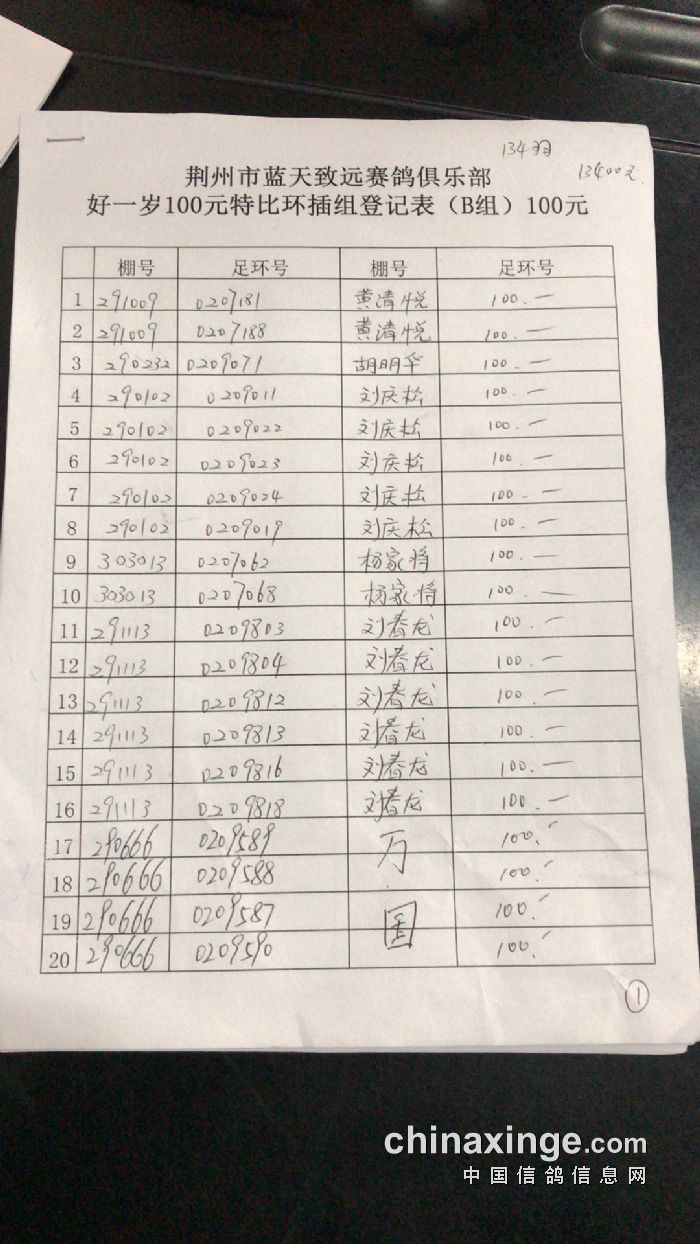 134羽
13400元.
荆州市蓝天致远赛鸽俱乐部
好一岁100元特比环插组登记表（B组）100元
棚号 足环号 棚号 足环号
1 291009 0207181 黄清悦 100.一
2 291009 0207188 黄清悦 100.一
3 290232 0209071 胡明华 100.一
4 290102 0209011 刘庆松 100.一
5 290102 0209022 刘庆松 100.一
6 290102 0209023 刘庆松 100.一
7 290102 0209024 刘庆松 100.一
8 290102 0209019 刘庆松 100.一
9 303013 0207062 杨家将 100.一
10 303013 0207068 杨家将 100.一
11 291113 0209803 刘春龙 100.一
12 291113 0209804 刘春龙 100.一
13 291113 0209812 刘春龙 100.一
14 291113 0209813 刘春龙 100.一
15 291113 0209816 刘春龙 100.一
16 291113 0209818 刘春龙 100.一
17 290666 0209589 万 100.
18 290666 0209588 100.
19 290666 0209587 国 100.
20 290666 0209590 100.
1
chinaxinge.com
中国信鸽信息网